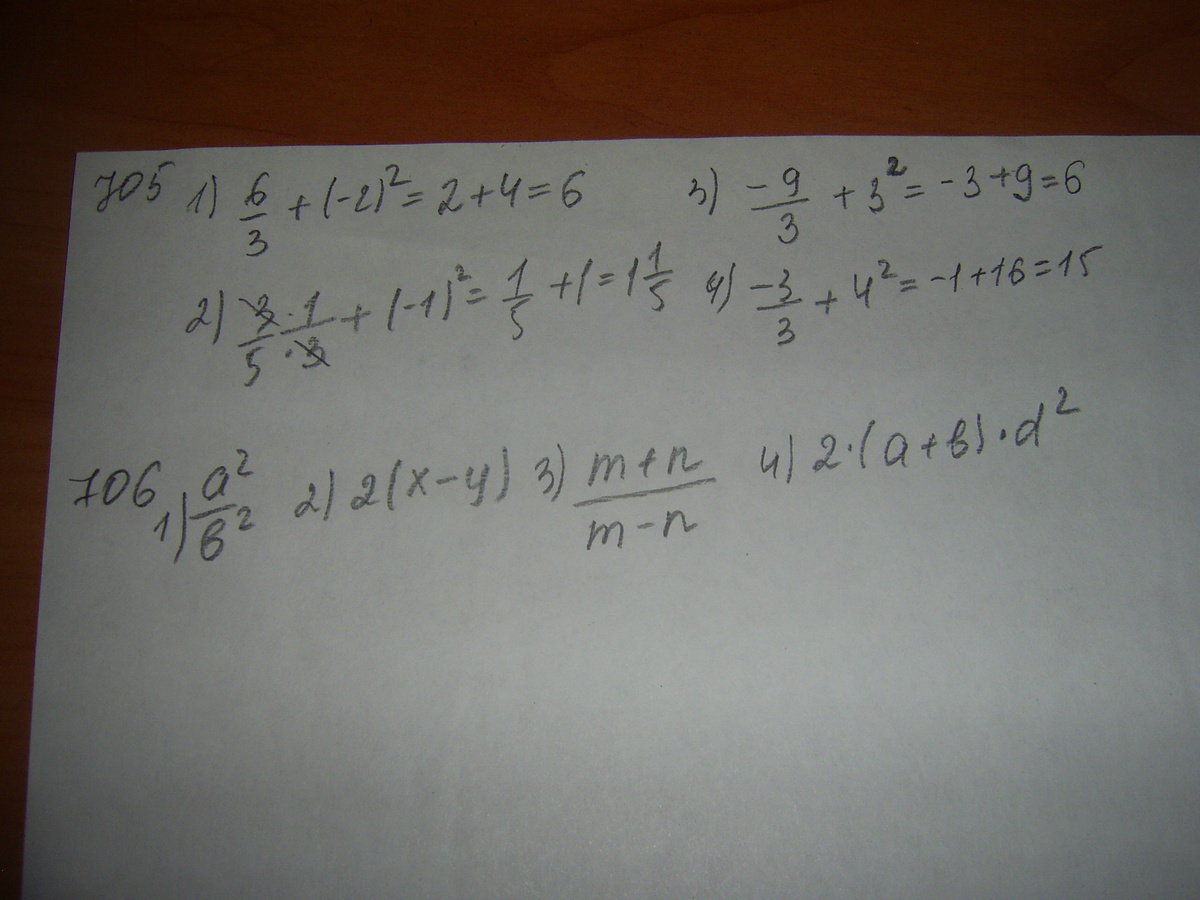 705 1) 6/3 + (-2)² = 2 + 4 = 6 3) -9/3 + 3² = -3 + 9 = 6
2) 3/5 · 1/3 + (-1)² = 1/5 + 1 = 1 1/5 4) -3/3 + 4² = -1 + 16 = 15
706 1) a²/b² 2) 2(x-y) 3) m+n/m-n 4) 2·(a+b)·d²